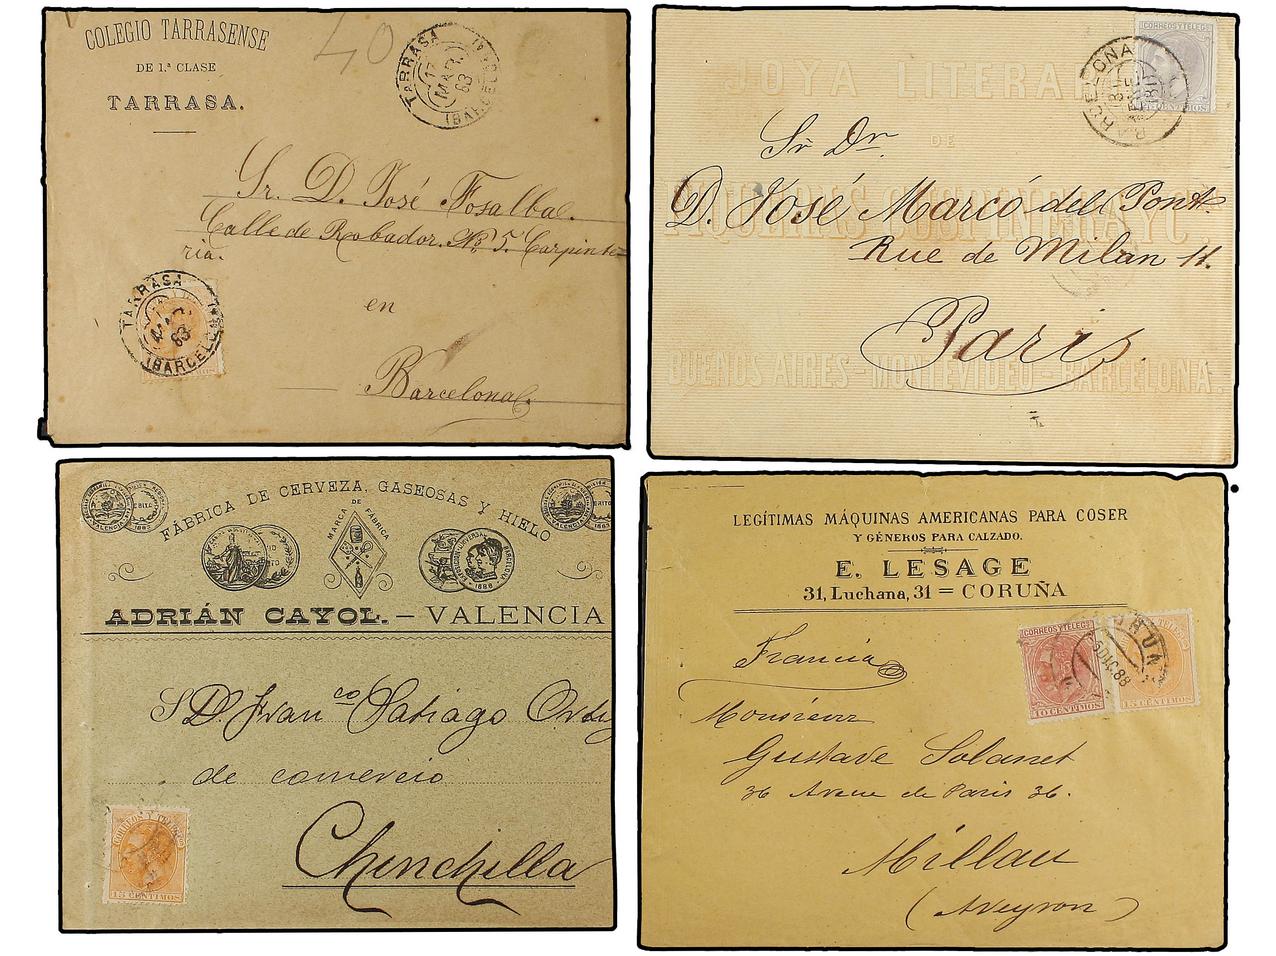 COLEGIO TARRASENSE
DE 1.ª CLASE
TARRASA.
40
TARRASA
17
MAR
83
(BARCELONA)
Sr. D. José Fosalba.
Calle de Robador. Nº 5. Carpinte-
ria.
en
Barcelona.
TARRASA
MAR
83
(BARCELONA)
CORREOS Y TELEGS
25 CENTIMOS
BARCELONA
JOYA LITERARIA
DE
PIQUERAS CUSPINERA Y Cª
BUENOS AIRES-MONTEVIDEO-BARCELONA.
Sr Dr.
D. José Marcó del Pont.
Rue de Milan 11.
Paris.
FÁBRICA DE CERVEZA, GASEOSAS Y HIELO
MARCA DE FÁBRICA
VALENCIA
1883
BARCELONA
1888
ADRIÁN CAYOL. – VALENCIA
S. D. Fran co Satiago Ortiz
de comercio
Chinchilla
CORREOS Y TELEGS
15 CENTIMOS
LEGÍTIMAS MÁQUINAS AMERICANAS PARA COSER
Y GÉNEROS PARA CALZADO.
E. LESAGE
31, Luchana, 31 = CORUÑA
CORREOS Y TELEGS
10 CENTIMOS
15 CENTIMOS
DIC 88
Francia
Monsieur
Gustave Solanet
36 Avenue de Paris 36.
Millau
(Aveyron)